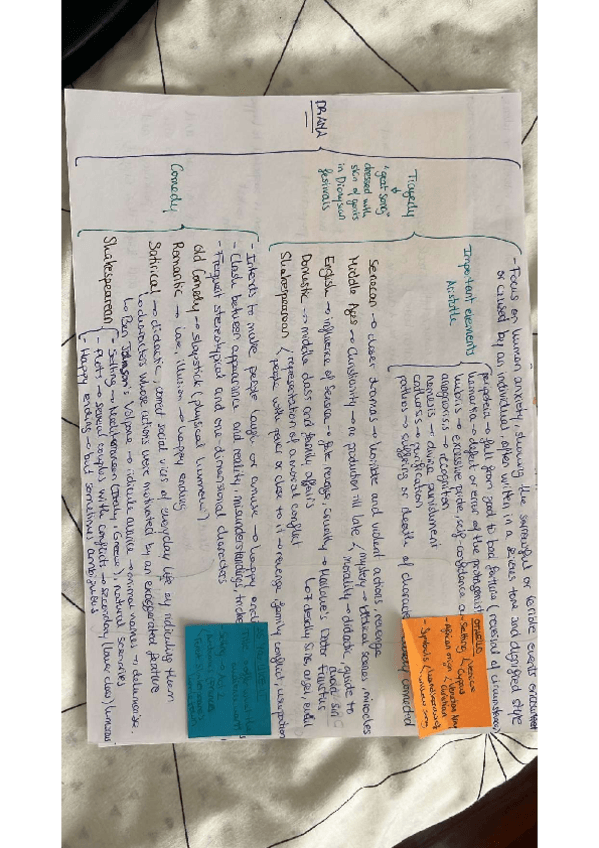 DRAMA
Tragedy
"goat song"
dressed with
skin of goats
in Dionysian
festivals
- Focus on human anxiety, showing the sorrowful or terrible events encountered
or caused by an individual, often written in a serious tone and dignified style
Important elements
Aristotle
peripeteia → fall from good to bad fortune (reversal of circumstances)
hamartia → defect or error of the protagonist
hubris → excessive pride, self confidence
anagnorisis → recognition
nemesis → divine punishment
catharsis → purification
pathos → suffering or death of character
OTHELLO
- Setting Venice
Cyprus
- African origin
Christian
- Symbols handkerchief
willow song
Senecan → closer dramas → horrible and violent actions, revenge
Middle Ages → Christianity → no production till late
mystery → biblical scenes, miracles
morality → didactic, guide to
avoid sin
English → influence of Seneca → Marlowe's Doctor Faustus
↳ 7 deadly sins, angel, evil
Domestic → middle class and family affairs
Shakespearean
representation of a moral conflict
people with power or close to it → revenge, family conflict, usurpation
Comedy
- Intents to make people laugh or amuse → happy
- Clash between appearance and reality, misunderstandings,
- Frequent stereotypical and one-dimensional characters
Old Comedy → slapstick (physical humour)
Romantic → love, illusion → happy ending
Satirical → didactic, comed social vices of everyday life by ridiculing them
↳ characters whose actions were motivated by an exaggerated feature
↳ Ben Johnson: Volpone → ridicule avarice → animal names → dehumanise.
Shakespearean
- Setting → Mediterranean (Italy, Greece), natural sceneries
- Plot → several couples with conflicts → secondary (lower class) humorous
- Happy ending → but sometimes ambiguous